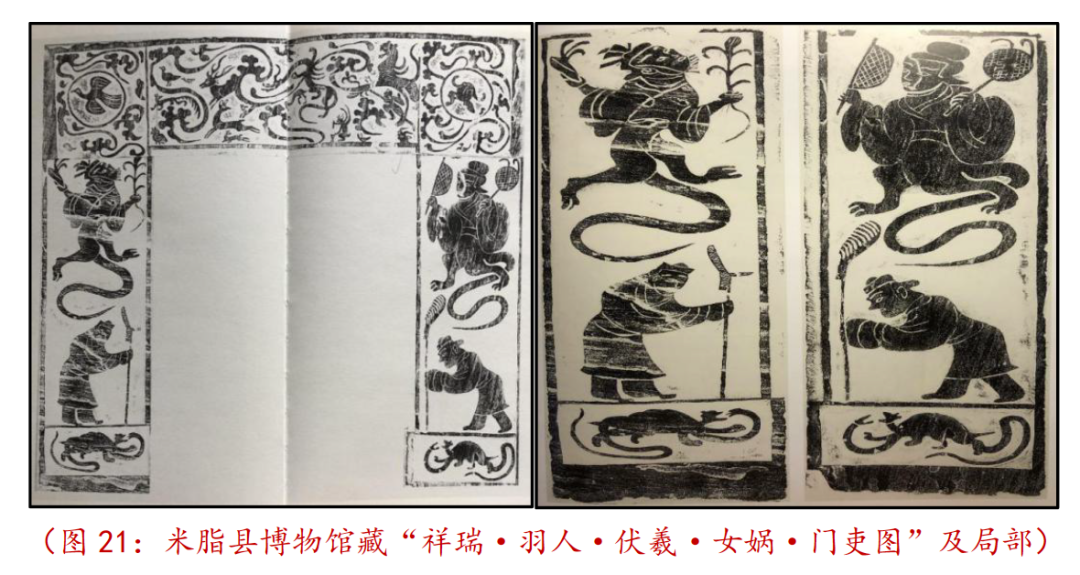 （图 21：米脂县博物馆藏“祥瑞·羽人·伏羲·女娲·门吏图”及局部）